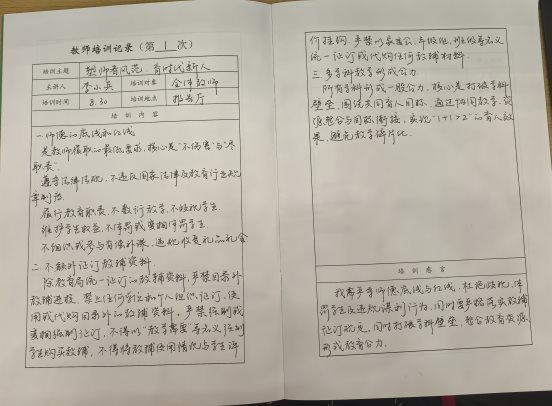 教师培训记录（第 1 次）
培训主题 塑师者风范 育时代新人
主讲人 李小英 培训对象 全体教师
培训时间 8.30 培训地点 报告厅
培训内容
一.师德的底线和红线
是教师履职的最低要求，核心是"不伤害"与"尽
职责"
遵守法律法规，不违反国家法律及教育行业规
章制度
履行教育职责，不敷衍教学，不歧视学生
维护学生权益，不体罚或变相体罚学生
不组织或参与有偿补课，违规收受礼品礼金
二.不额外征订教辅资料
除教育局统一征订的教辅资料，严禁目录外
教辅进校，禁止任何学校和个人组织征订、使
用或代购目录外的教辅资料，严禁强制或
变相强制征订，不得以"教学需要"等名义强制
学生购买教辅，不得将教辅使用情况与学生评
价挂钩，严禁以家委会、年级组、班级等名义
统一征订或代购任何教辅材料
三.多学科教学形成合力
所有学科形成一股合力，核心是打破学科
壁垒，围绕共同育人目标，通过协同教学、资
源整合与目标衔接，实现"1+1>2"的育人效
果，避免教学碎片化.
培训感言
我要牢牢师德底线与红线，杜绝歧视、体
罚学生及违规谋利行为，同时要严格落实教辅
征订规范，同时打破学科壁垒，整合教育资源，
形成教育合力.